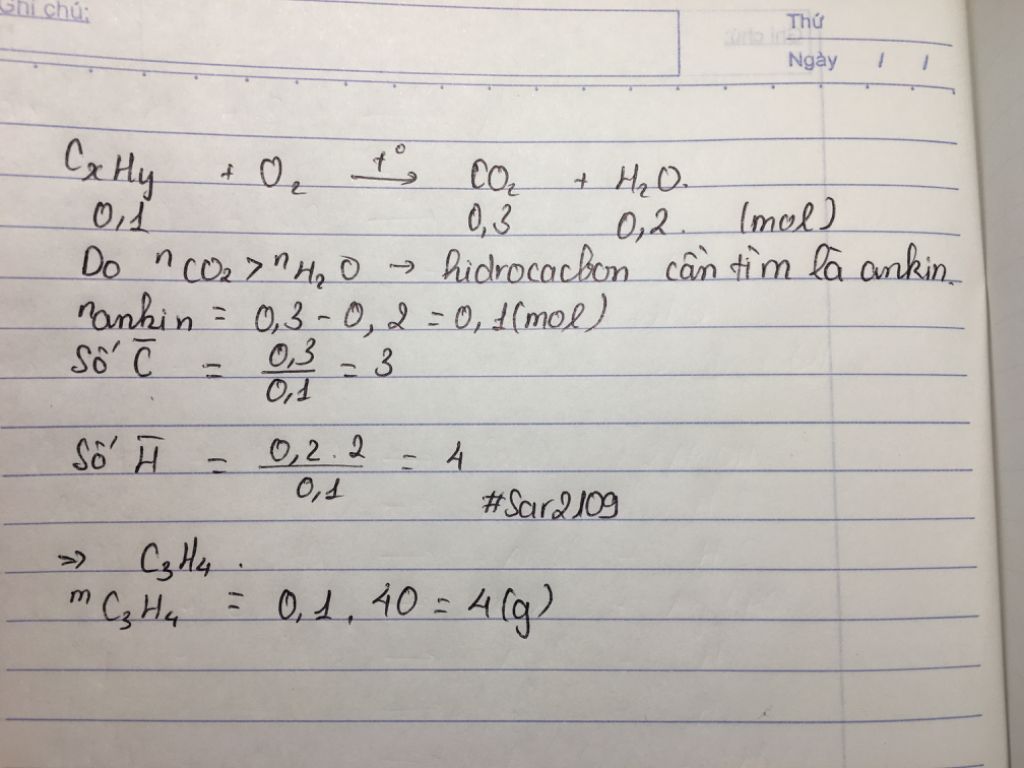 Ghi chú:
Thứ
Ngày / /
CxHy + O₂ —t°→ CO₂ + H₂O.
0,1 0,3 0,2. (mol)
Do nCO₂ > nH₂O → hidrocacbon cần tìm là ankin.
nankin = 0,3 - 0,2 = 0,1(mol)
Số C̅ = 0,3/0,1 = 3
Số H̅ = 0,2.2/0,1 = 4
#Sar2109
=> C₃H₄.
mC₃H₄ = 0,1.40 = 4(g)